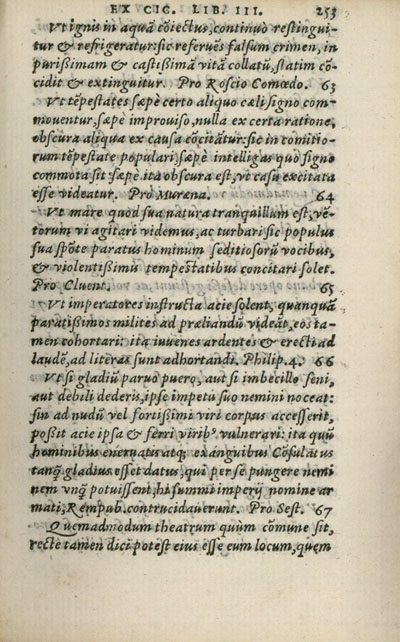 EX CIC. LIB. III. 253
Vt ignis in aquā cōiectus, continuò restingui-
tur & refrigeratur: sic referuēs falsum crimen, in
purißimam & castißimā vitā collatū, statim cō-
cidit & extinguitur. Pro Roscio Comœdo. 63
Vt tēpestates sæpè certo aliquo cæli signo com-
mouentur, sæpè improuiso, nulla ex certa ratione,
obscura aliqua ex causa cōcitātur: sic in comitio-
rum tēpestate populari, sæpè intelligas quo signo
commota sit: sæpè ita obscura est, vt casu excitata
esse videatur. Pro Muræna. 64
Vt mare quod sua natura tranquillum est, vē-
torum vi agitari videmus, ac turbari: sic populus
sua spōte paratus hominum seditiosorū vocibus,
& violentißimis tempestatibus concitari solet.
Pro Cluent. 65
Vt imperatores instructa acie solent, quanquā
paratißimos milites ad præliandū videāt, eos ta-
men cohortari: ita iuuenes ardentes & erecti ad
laudē, ad literas sunt adhortandi. Philip. 4. 66
Vt si gladiū paruo puero, aut si imbecillo seni,
aut debili dederis, ipse impetu suo nemini noceat:
sin ad nudū vel fortißimi viri corpus accesserit,
poßit acie ipsa & ferri virib⁹ vulnerari: ita quū
hominibus eneruatis atq; exanguibus Cōsulatus
tanq̄ gladius esset datus, qui per se pungere nemi
nem vnq̄ potuissent, hi summi imperij nomine ar
mati, Rempub. contrucidauerunt. Pro Sest. 67
Quemadmodum theatrum quùm cōmune sit,
rectè tamen dici potest eius esse eum locum, quem